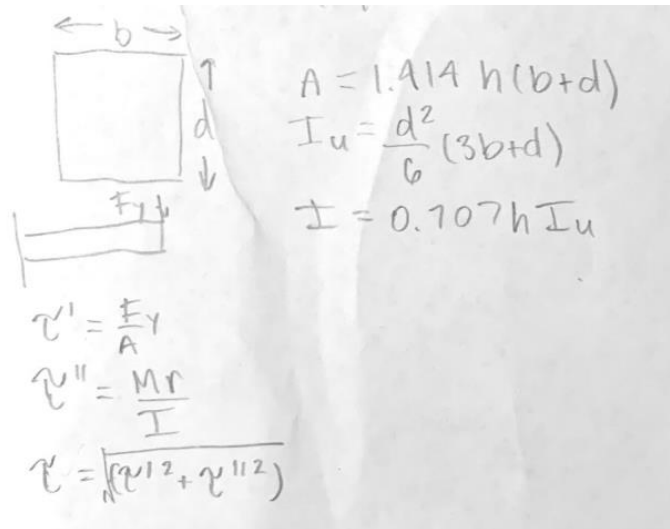 b
d
A = 1.414 h(b+d)
I_u = d²/6 (3b+d)
I = 0.707h I_u
Fy
τ' = Fy/A
τ'' = Mr/I
τ = √(τ'² + τ''²)